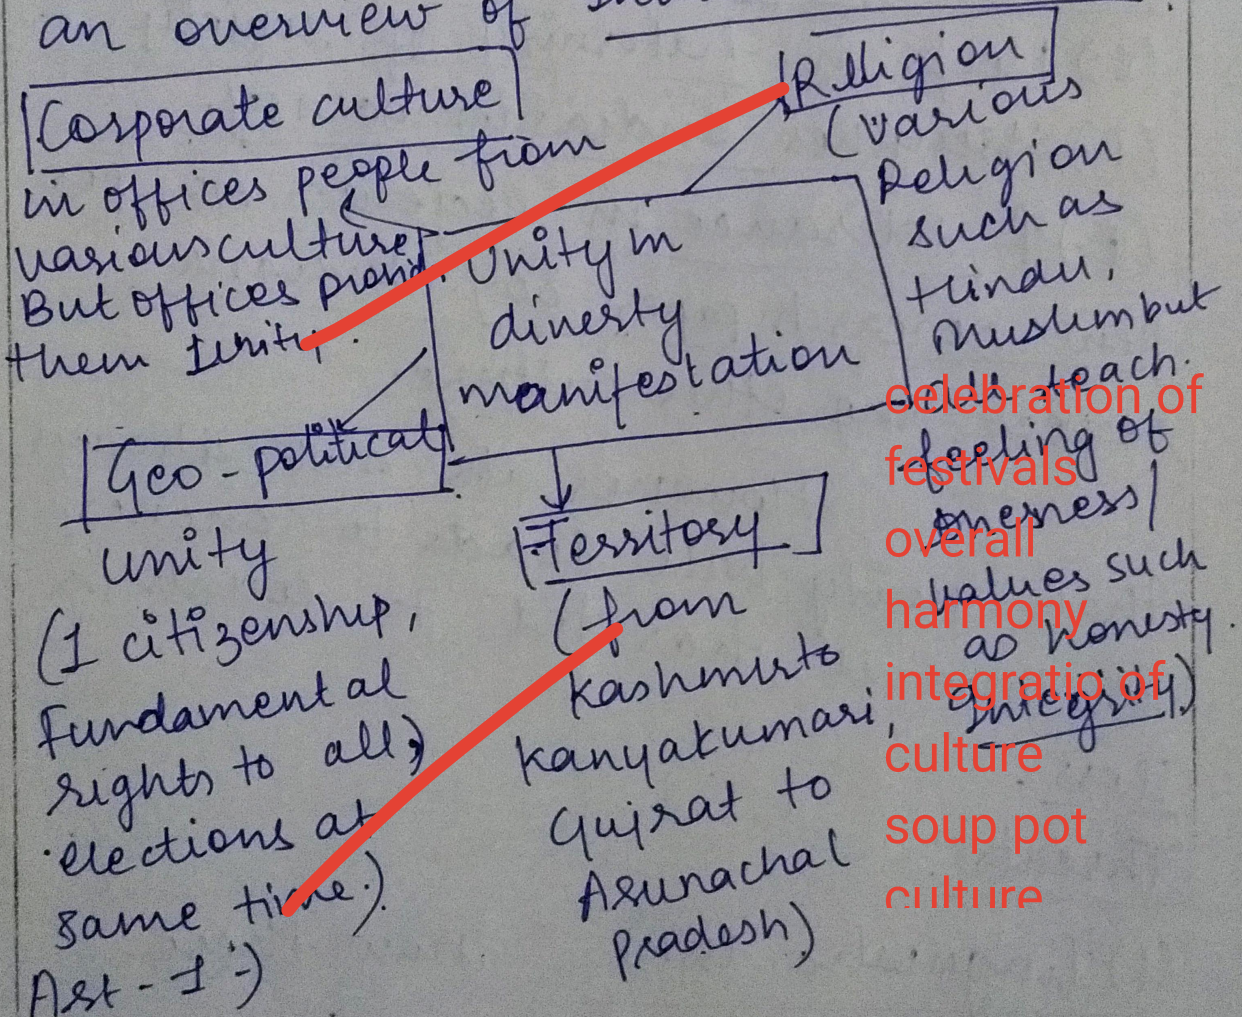 an overview of
Corporate culture
in offices people from
various culture
But offices provid
them Unity.
Religion
(various
Religion
such as
Hindu,
Muslim but
all teach
feeling of
oneness/
values such
as honesty.
Integrity)
Unity in
diversity
manifestation
Geo-political
unity
(1 citizenship,
Fundamental
rights to all,
elections at
same time.)
Art-1:-)
Territory
(from
Kashmir to
Kanyakumari,
Gujrat to
Arunachal
Pradesh)
celebration of
festivals
overall
harmony
integratio of
culture
soup pot
culture